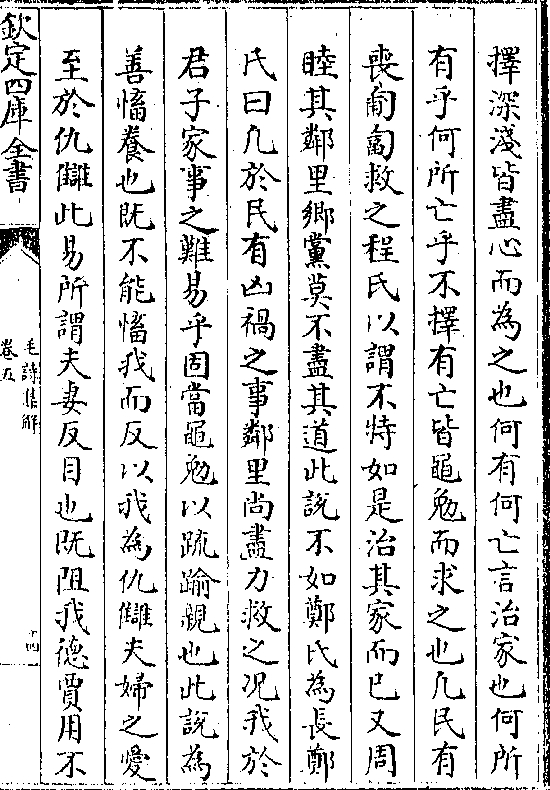 擇深淺皆盡心而為之也何有何亡言治家也何所
有乎何所亡乎不擇有亡皆黽勉而求之也凡民有
喪匍匐救之程氏以謂不特如是治其家而已又周
睦其鄰里鄉黨莫不盡其道此說不如鄭氏為長鄭
氏曰凡於民有凶禍之事鄰里尚盡力救之况我於
君子家事之難易乎固當黽勉以疏踰親也此說為
善慉養也既不能慉我而反以我為仇讎夫婦之愛
至於仇讎此易所謂夫妻反目也既阻我德賈用不
欽定四庫全書
毛詩集解
卷五
十四